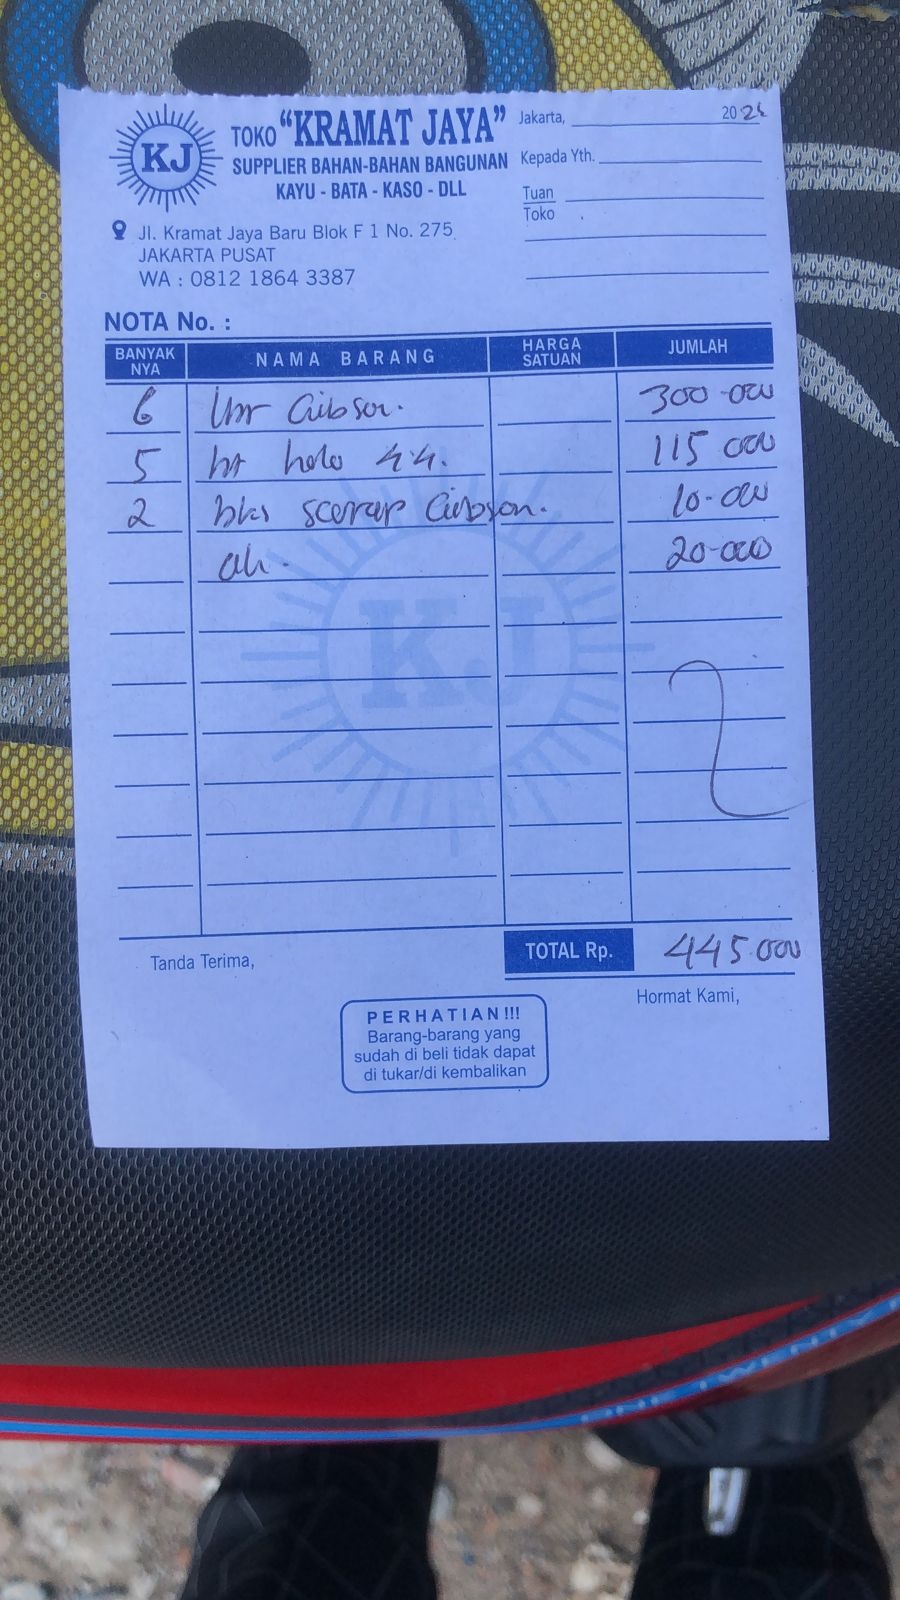 KJ
TOKO "KRAMAT JAYA"
SUPPLIER BAHAN-BAHAN BANGUNAN
KAYU - BATA - KASO - DLL
Jl. Kramat Jaya Baru Blok F 1 No. 275
JAKARTA PUSAT
WA : 0812 1864 3387
Jakarta, 20
Kepada Yth.
Tuan
Toko
NOTA No. :
BANYAK NYA NAMA BARANG HARGA SATUAN JUMLAH
6 Gibson. 300-000
5 bt holo 4.4. 115 000
2 bks Gibson. 10-000
20-000
KJ
TOTAL Rp. 445.000
Tanda Terima,
Hormat Kami,
PERHATIAN!!!
Barang-barang yang
sudah di beli tidak dapat
di tukar/di kembalikan
ONE TWENTY